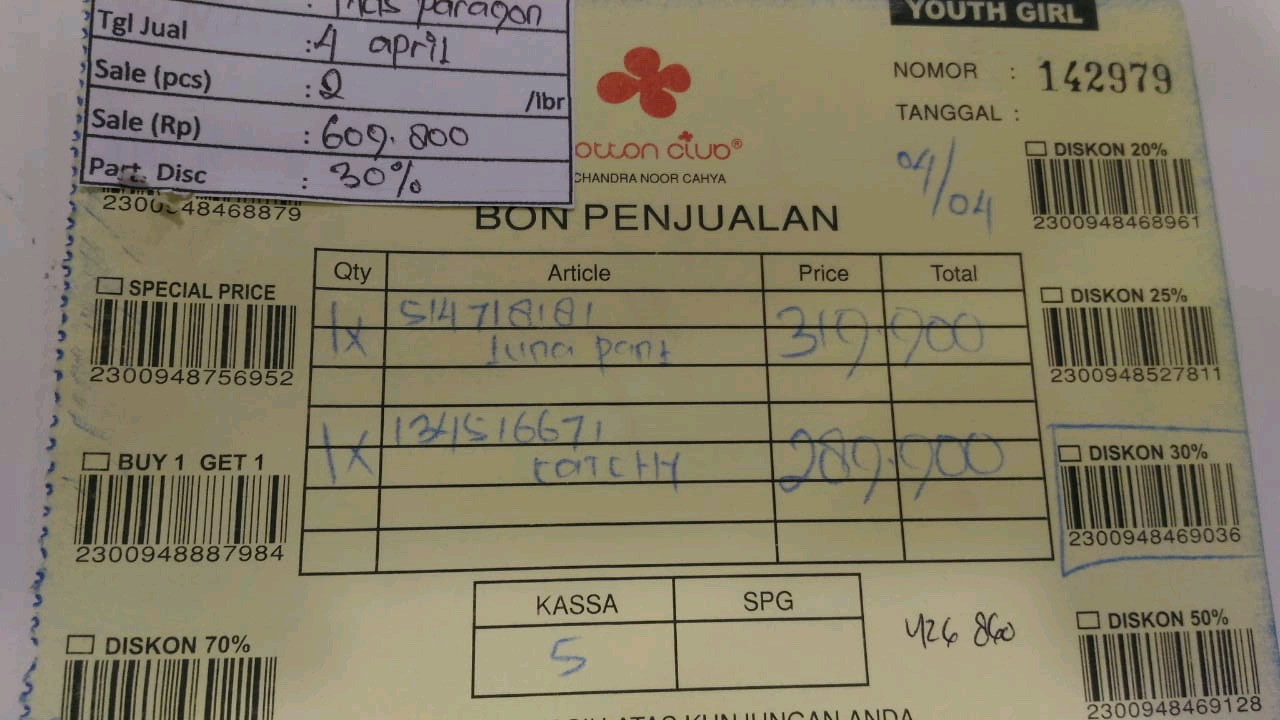 : Thas paragon
Tgl Jual : 4 april
Sale (pcs) : 2 /lbr
Sale (Rp) : 609.800
Part. Disc : 30%
YOUTH GIRL
NOMOR : 142979
TANGGAL :
04/04
otton club®
CHANDRA NOOR CAHYA
BON PENJUALAN
48468879
DISKON 20%
2300948468961
SPECIAL PRICE
2300948756952
DISKON 25%
2300948527811
BUY 1 GET 1
2300948887984
DISKON 30%
2300948469036
Qty Article Price Total
1x 514718181 319.900
luna pant
1x 134516671 289.900
CATCHY
KASSA SPG
5
426 860
DISKON 70%
DISKON 50%
2300948469128
ATAS KUNJUNGAN ANDA